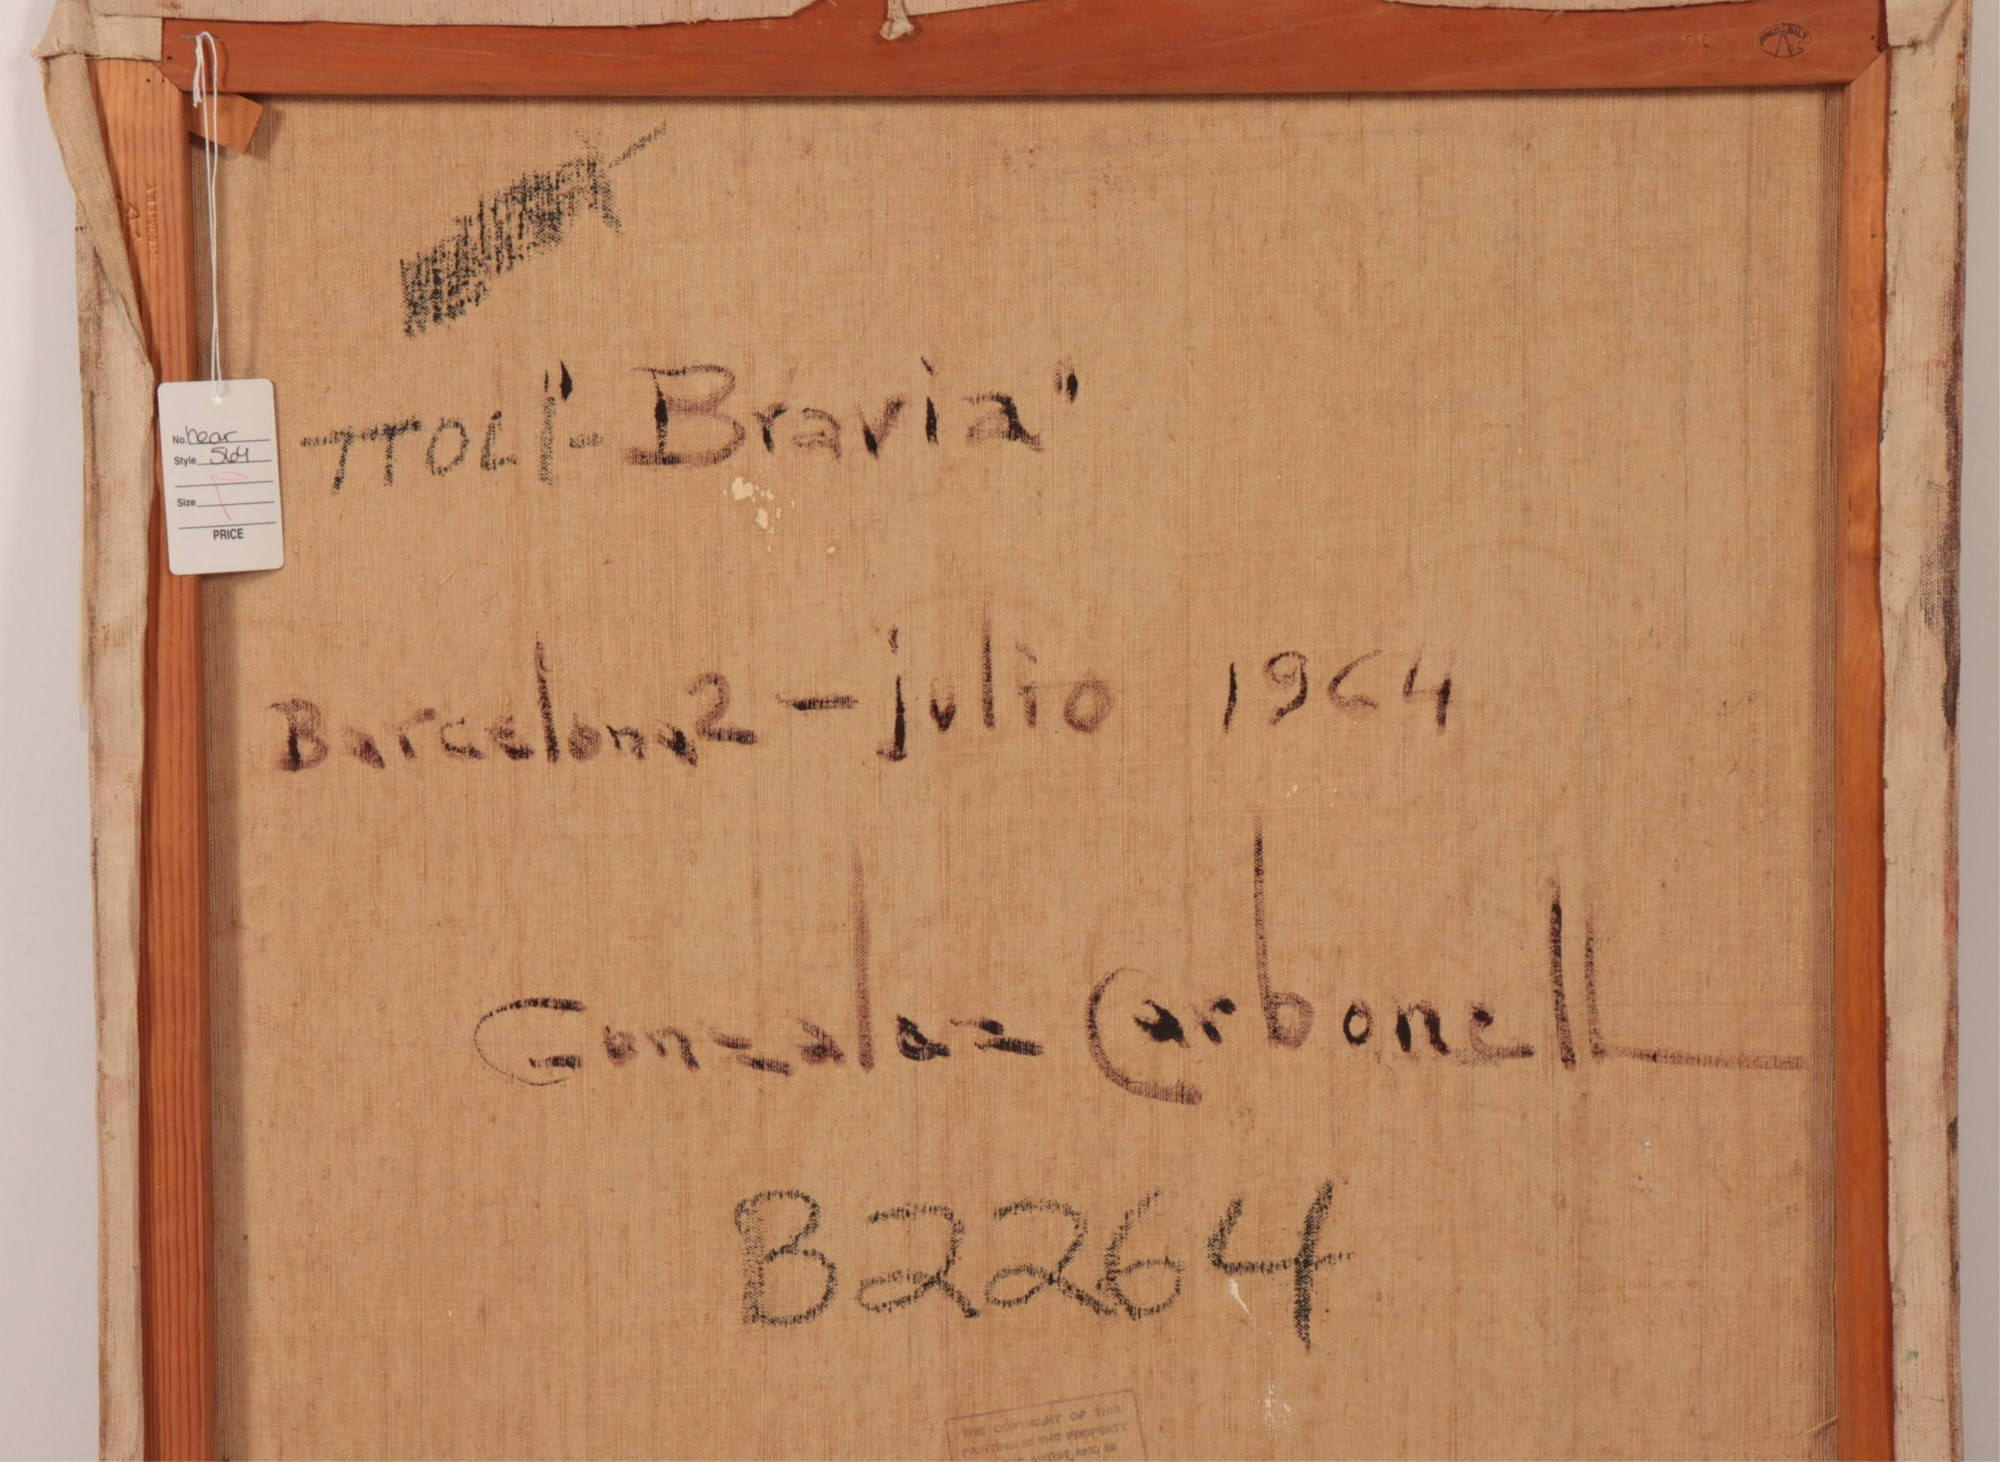 TTOLI - "Bravia"
Barcelona 2 - julio 1964
Gonzalez Carbonell
B2264
No. near
Style 564
Size
PRICE
28
THE COPYRIGHT OF THIS
PAINTING IS THE PROPERTY
ARTIST AND IS